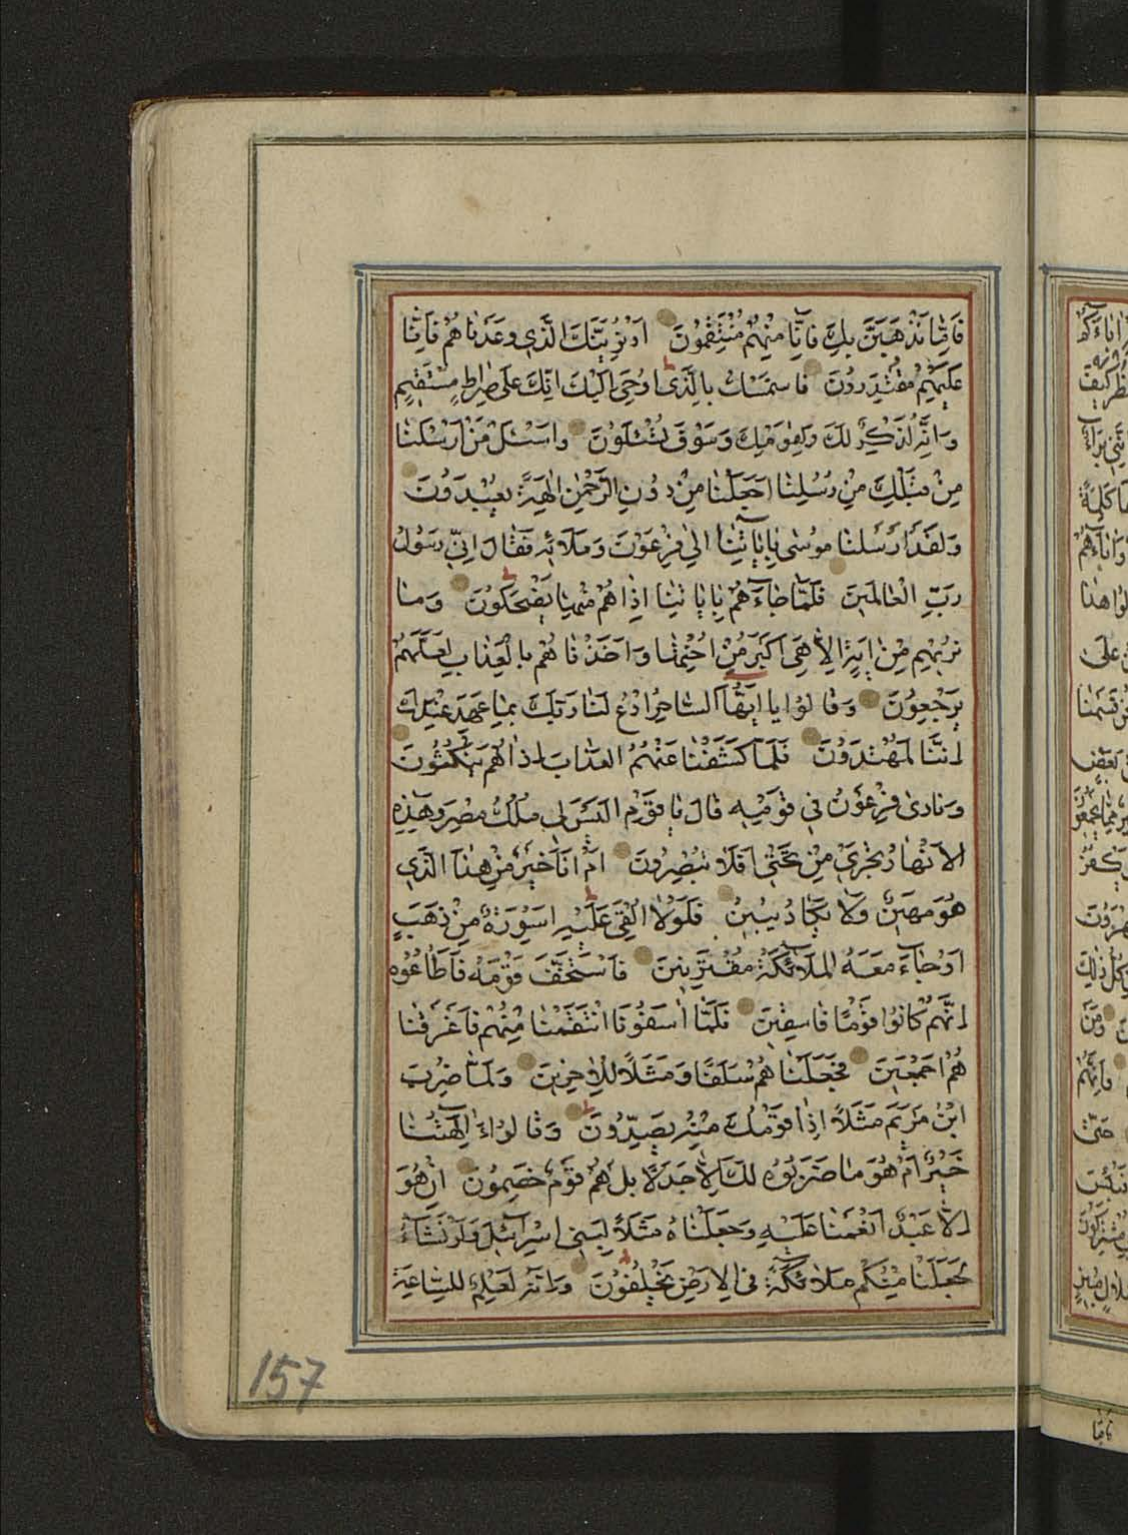 فَاِمَّا نَذْهَبَنَّ بِكَ فَاِنَّا مِنْهُمْ مُنْتَقِمُونَ اَوْ نُرِيَنَّكَ الَّذِي وَعَدْنَاهُمْ فَاِنَّا
عَلَيْهِمْ مُقْتَدِرُونَ فَاسْتَمْسِكْ بِالَّذِي اُوحِيَ اِلَيْكَ اِنَّكَ عَلٰى صِرَاطٍ مُسْتَقِيمٍ
وَاِنَّهُ لَذِكْرٌ لَكَ وَلِقَوْمِكَ وَسَوْفَ تُسْئَلُونَ وَاسْئَلْ مَنْ اَرْسَلْنَا
مِنْ قَبْلِكَ مِنْ رُسُلِنَا اَجَعَلْنَا مِنْ دُونِ الرَّحْمٰنِ اٰلِهَةً يُعْبَدُونَ
وَلَقَدْ اَرْسَلْنَا مُوسٰى بِاٰيَاتِنَا اِلٰى فِرْعَوْنَ وَمَلَائِهِ فَقَالَ اِنِّي رَسُولُ
رَبِّ الْعَالَمِينَ فَلَمَّا جَاءَهُمْ بِاٰيَاتِنَا اِذَا هُمْ مِنْهَا يَضْحَكُونَ وَمَا
نُرِيهِمْ مِنْ اٰيَةٍ اِلَّا هِيَ اَكْبَرُ مِنْ اُخْتِهَا وَاَخَذْنَاهُمْ بِالْعَذَابِ لَعَلَّهُمْ
يَرْجِعُونَ وَقَالُوا يَا اَيُّهَا السَّاحِرُ ادْعُ لَنَا رَبَّكَ بِمَا عَهِدَ عِنْدَكَ
اِنَّنَا لَمُهْتَدُونَ فَلَمَّا كَشَفْنَا عَنْهُمُ الْعَذَابَ اِذَا هُمْ يَنْكُثُونَ
وَنَادٰى فِرْعَوْنُ فِي قَوْمِهِ قَالَ يَا قَوْمِ اَلَيْسَ لِي مُلْكُ مِصْرَ وَهٰذِهِ
الْاَنْهَارُ تَجْرِي مِنْ تَحْتِي اَفَلَا تُبْصِرُونَ اَمْ اَنَا خَيْرٌ مِنْ هٰذَا الَّذِي
هُوَ مَهِينٌ وَلَا يَكَادُ يُبِينُ فَلَوْلَا اُلْقِيَ عَلَيْهِ اَسْوِرَةٌ مِنْ ذَهَبٍ
اَوْ جَاءَ مَعَهُ الْمَلَائِكَةُ مُقْتَرِنِينَ فَاسْتَخَفَّ قَوْمَهُ فَاَطَاعُوهُ
اِنَّهُمْ كَانُوا قَوْمًا فَاسِقِينَ فَلَمَّا اٰسَفُونَا انْتَقَمْنَا مِنْهُمْ فَاَغْرَقْنَا
هُمْ اَجْمَعِينَ فَجَعَلْنَاهُمْ سَلَفًا وَمَثَلًا لِلْاٰخِرِينَ وَلَمَّا ضُرِبَ
ابْنُ مَرْيَمَ مَثَلًا اِذَا قَوْمُكَ مِنْهُ يَصِدُّونَ وَقَالُوا ءَاٰلِهَتُنَا
خَيْرٌ اَمْ هُوَ مَا ضَرَبُوهُ لَكَ اِلَّا جَدَلًا بَلْ هُمْ قَوْمٌ خَصِمُونَ اِنْ هُوَ
اِلَّا عَبْدٌ اَنْعَمْنَا عَلَيْهِ وَجَعَلْنَاهُ مَثَلًا لِبَنِي اِسْرَائِيلَ وَلَوْ نَشَاءُ
لَجَعَلْنَا مِنْكُمْ مَلَائِكَةً فِي الْاَرْضِ يَخْلُفُونَ وَاِنَّهُ لَعِلْمٌ لِلسَّاعَةِ
157